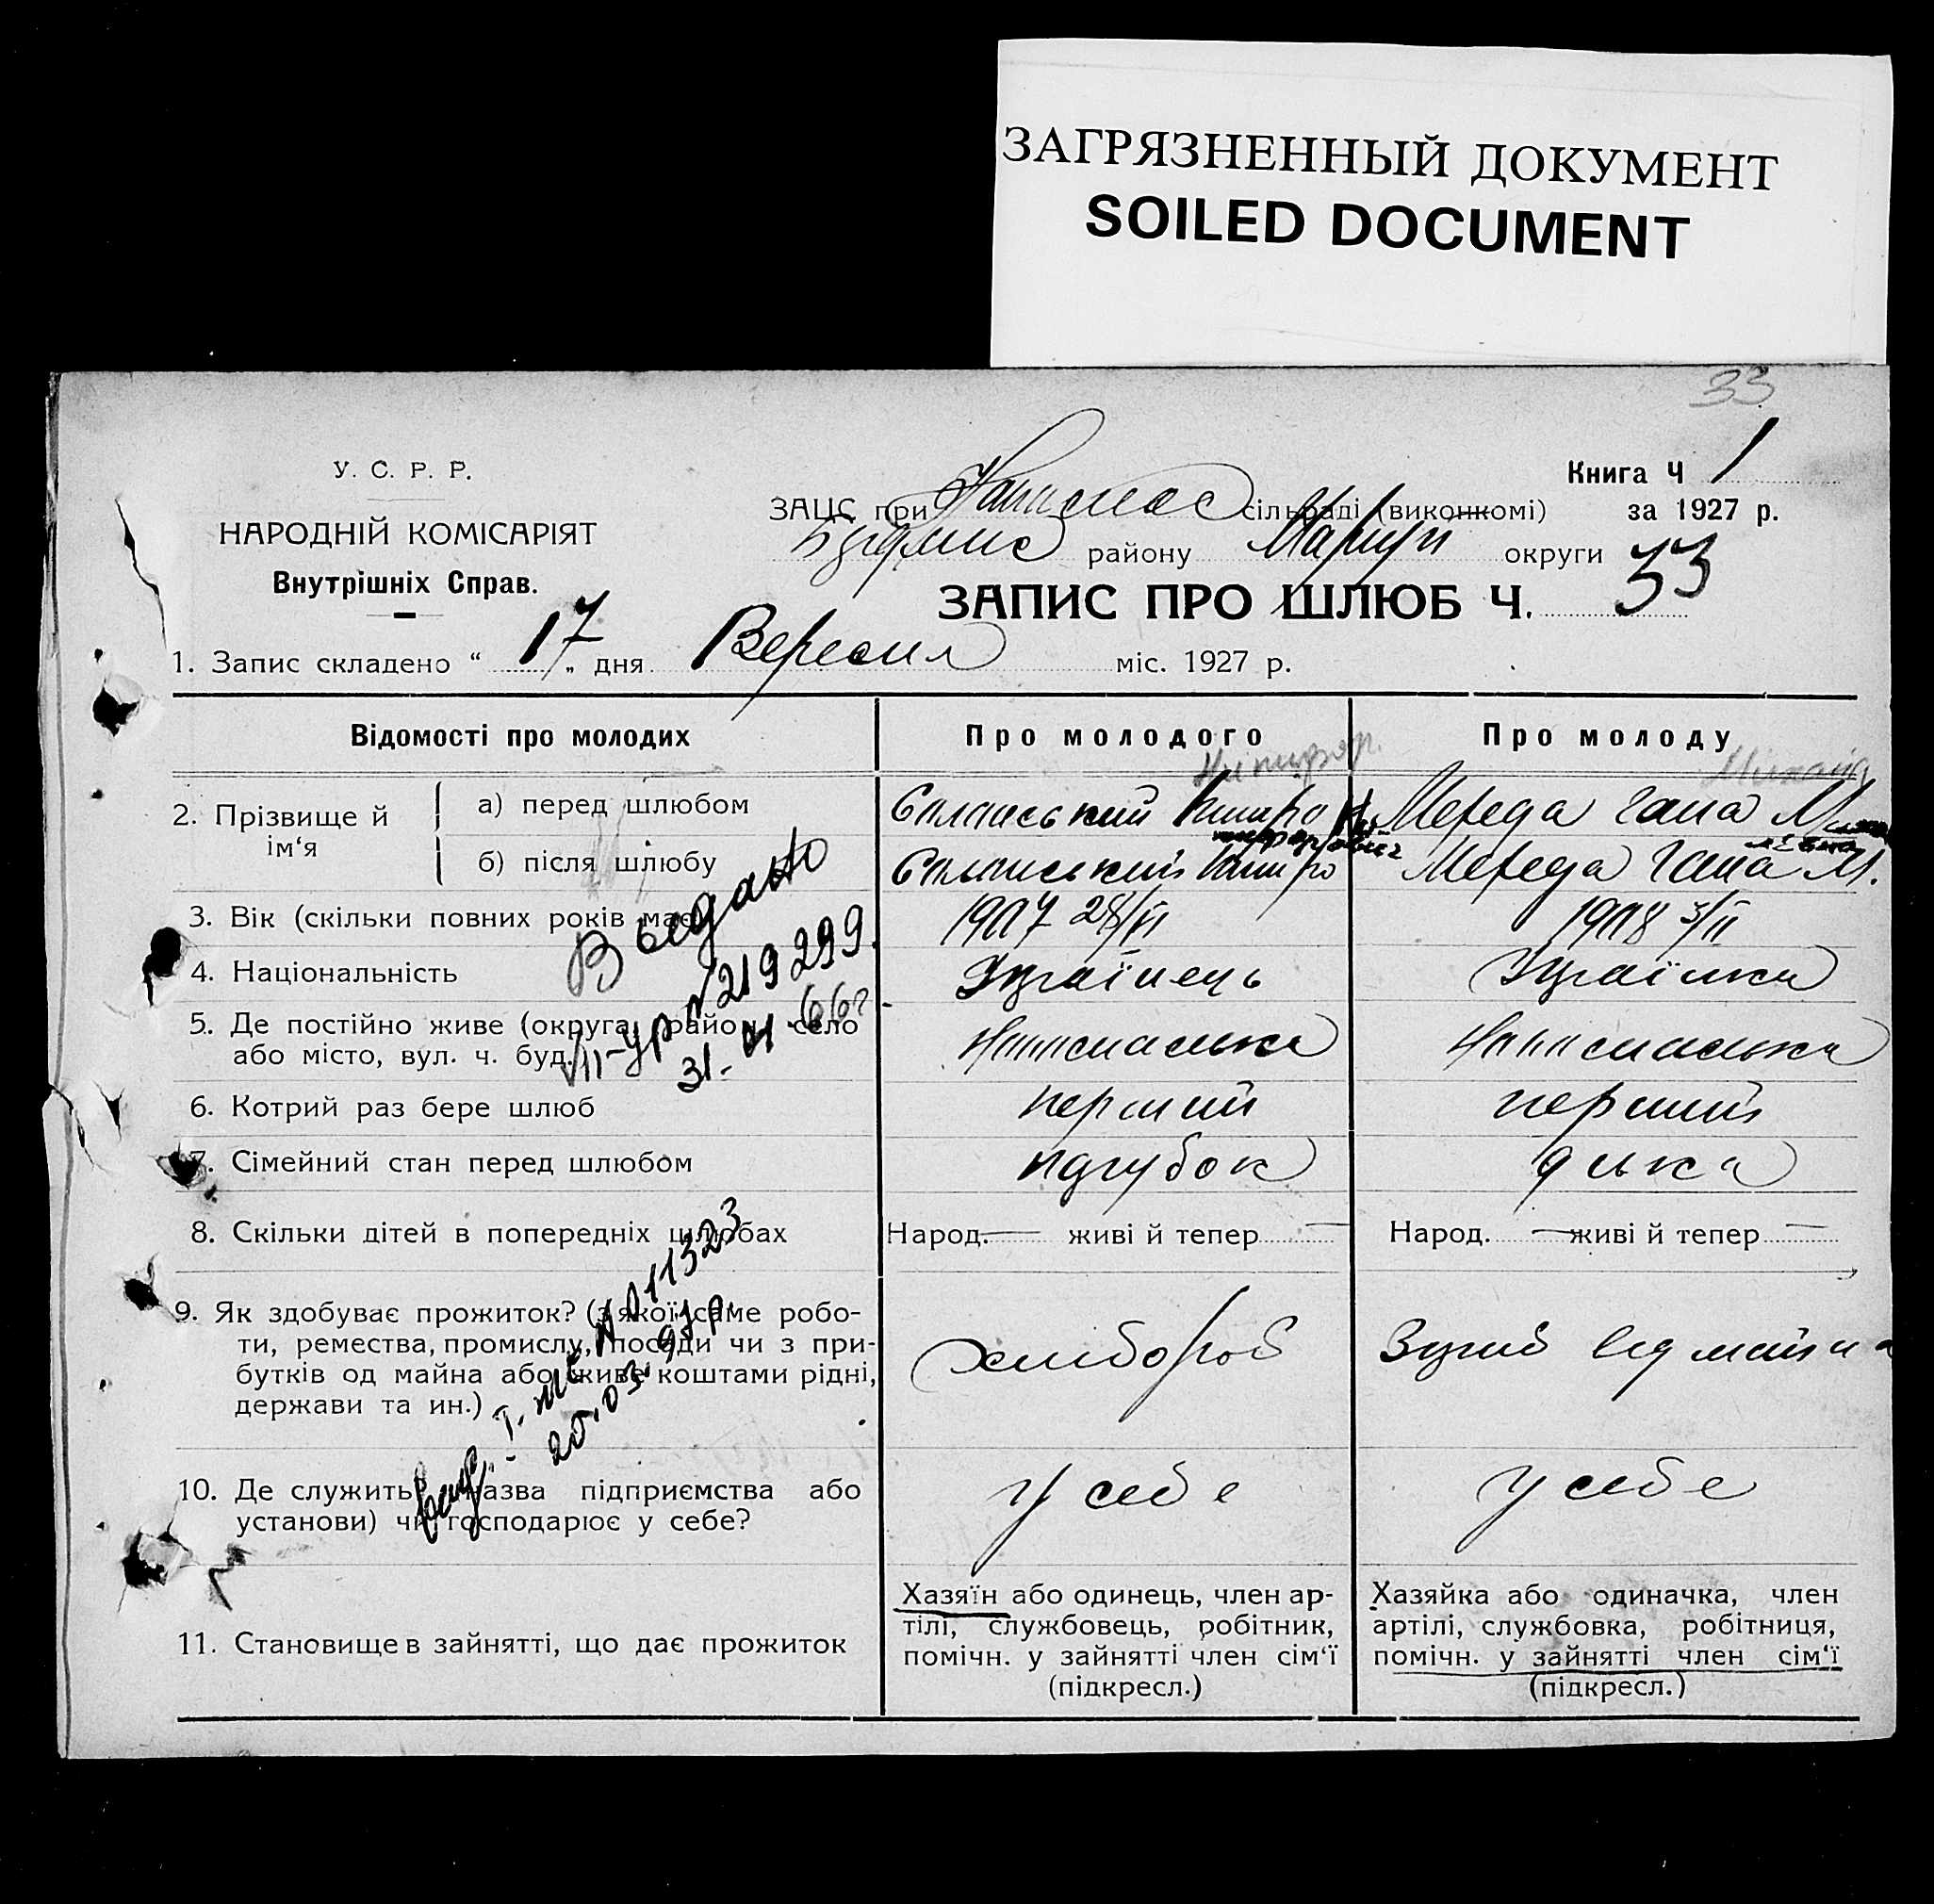 ЗАГРЯЗНЕННЫЙ ДОКУМЕНТ
SOILED DOCUMENT
33
У. С. Р. Р.
НАРОДНІЙ КОМІСАРІЯТ
Внутрішніх Справ.
Книга Ч 1
ЗАЦС при сільраді (виконкомі) за 1927 р.
району Маріуп округи
ЗАПИС ПРО ШЛЮБ Ч. 33
1. Запис складено “ 17 „ дня Вересня міс. 1927 р.
Відомості про молодих Про молодого Про молоду
2. Прізвище й ім‘я
а) перед шлюбом Мереда Гана М
б) після шлюбу Мереда Гана М.
3. Вік (скільки повних років має) 1907 28/VI 1908 3/II
4. Національність Українець Українка
5. Де постійно живе (округа, район, село
або місто, вул. ч. буд.
6. Котрий раз бере шлюб перший перший
7. Сімейний стан перед шлюбом парубок дівка
8. Скільки дітей в попередніх шлюбах Народ. — живі й тепер — Народ. — живі й тепер —
9. Як здобуває прожиток? (з якої саме робо-
ти, ремества, промислу, посади чи з при-
бутків од майна або живе коштами рідні,
держави та ин.)
хлібороб
від майна
10. Де служить (назва підприємства або
установи) чи господарює у себе?
у себе
у себе
11. Становище в зайнятті, що дає прожиток
Хазяїн або одинець, член ар-
тілі, службовець, робітник,
помічн. у зайнятті член сім‘ї
(підкресл.)
Хазяйка або одиначка, член
артілі, службовка, робітниця,
помічн. у зайнятті член сім‘ї
(підкресл.)
Выдано
VII-УР №219299
31. 66г.
I. №011323
25.03.97р.